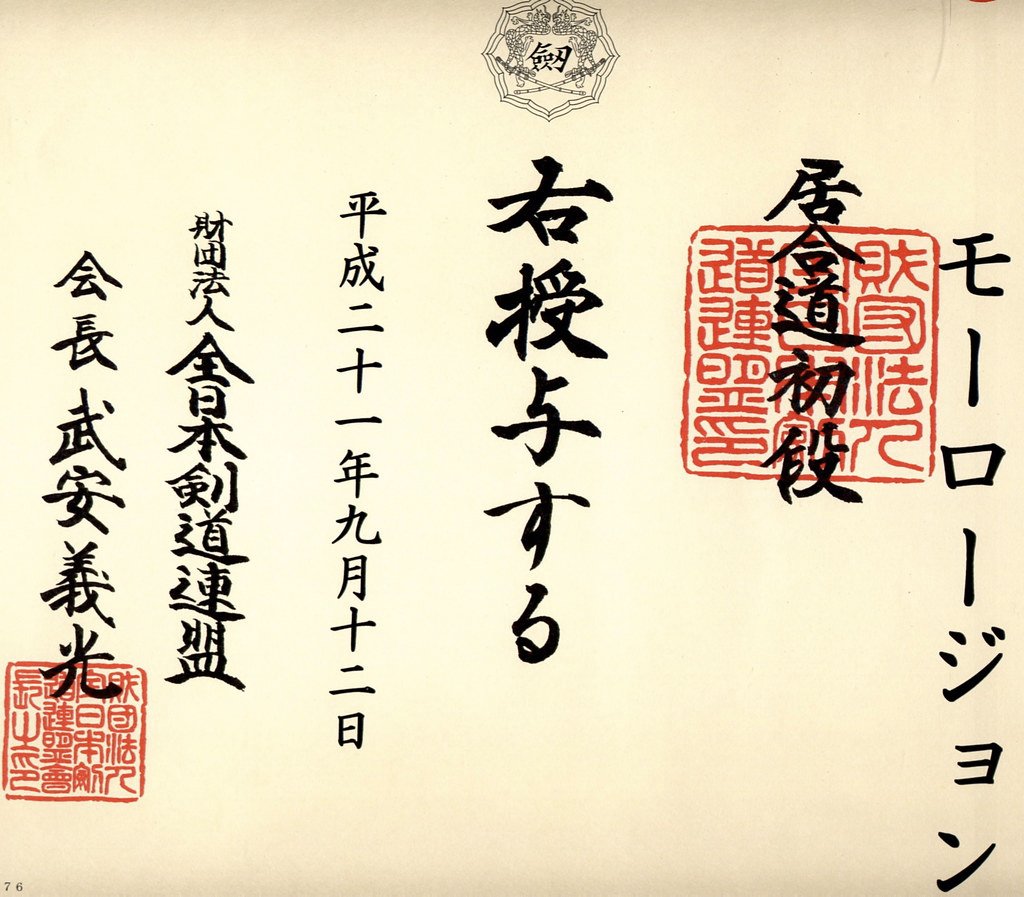 劔
モーロージョン
居合道初段
右授与する
平成二十一年九月十二日
財団法人全日本剣道連盟
会長武安義光
財団法人全日本剣道連盟印
財団法人全日本剣道連盟會長之印
76